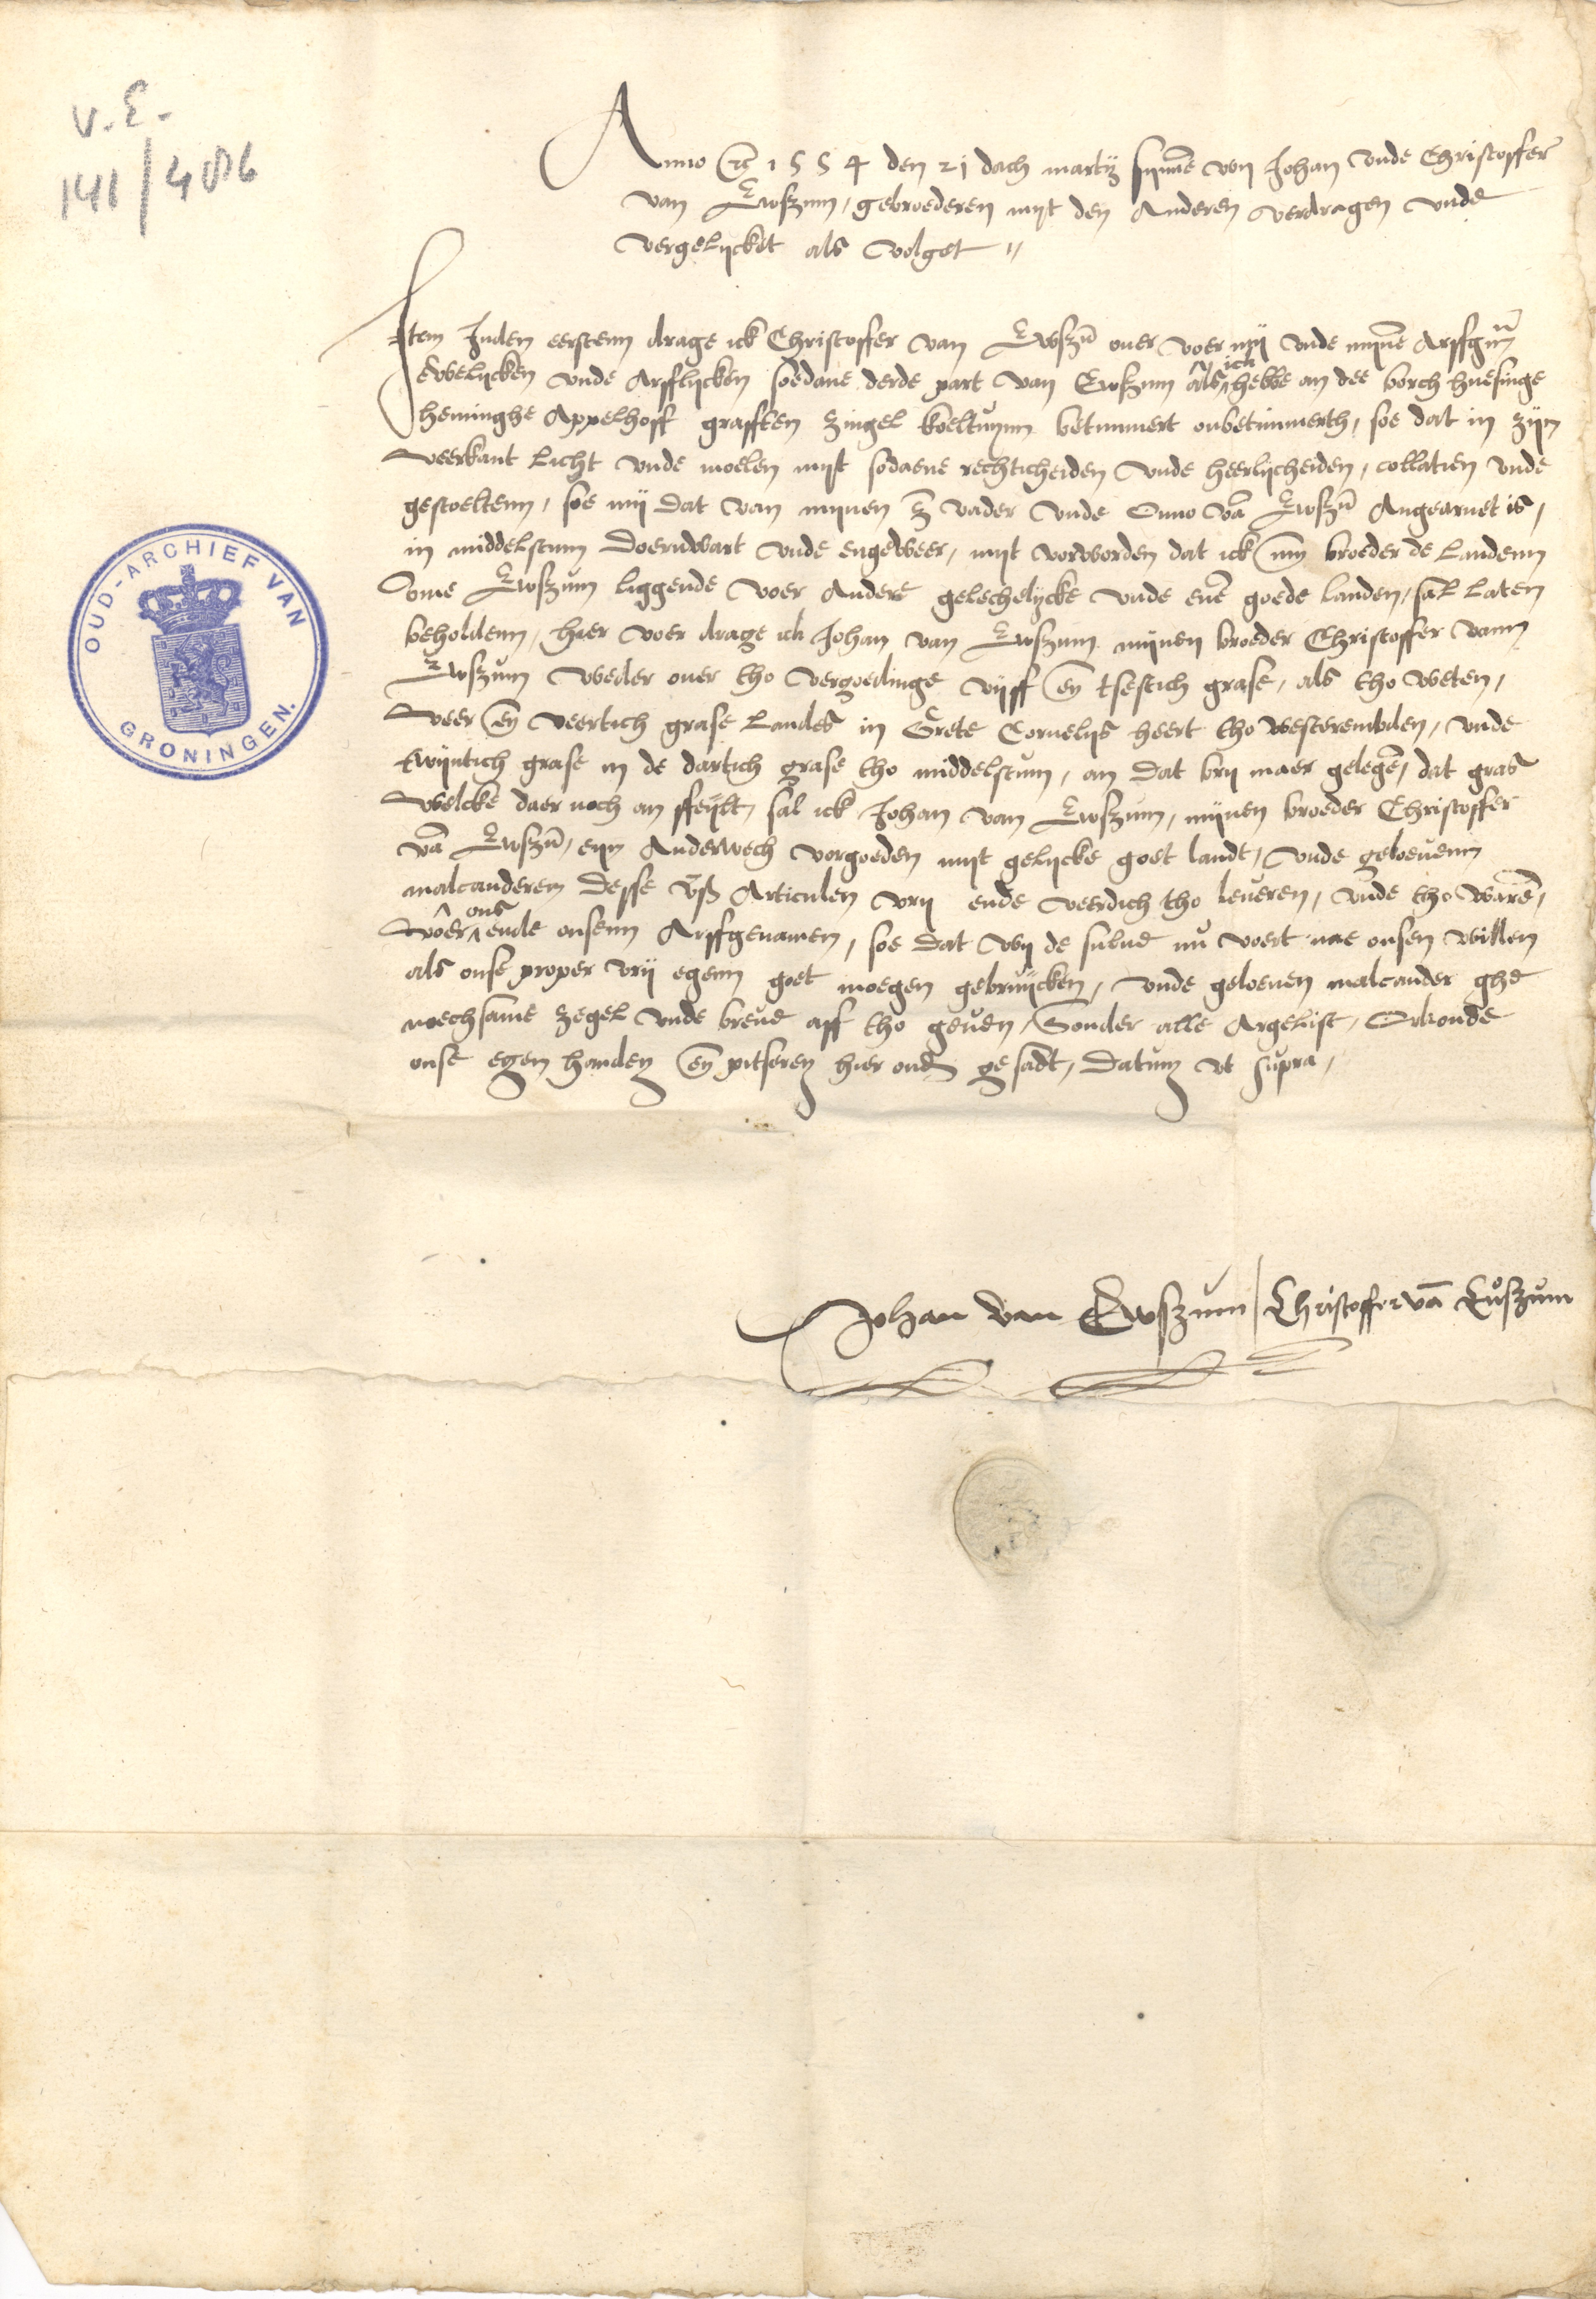 v. E.
141/486
Anno etc 1554 den 21 dach martij synnē wy Johan vnde Christoffer
van Ewszum, gebroederen myt den Anderen verdragen vnde
vergelycket als volget
Item Inden eerstenn drage ick Christoffer van Ewszū ouer voer my vnde mynē Arffgēn
ewelycken vnde Arfflycken soedane derde part van Ewszum als ick hebbe an dee borch huesinge
heminghe Appelhoff grafften zingel koeltuynn betimmert onbetimmerth, soe dat in zijn
veerkant licht vnde moelen myt sodaene rechticheiden vnde heerlycheiden, collatien vnde
gestoeltenn, soe my dat van mynen z vader vnde Onno vā Ewszū Angearuet is,
in middelstum Doerwart vnde engeweer, myt vorworden dat ick myn broeder de landenn
ome Ewszum liggende voer Andere gelechelycke vnde euē goede landen, sal laten
beholdenn, hier voer drage ick Johan van Ewszum mynen broeder Christoffer vann
Ewszum weder ouer tho vergoedinge vyff en tsestich grase, als tho weten,
veer en veertich grase landes in Grete Cornelys heert tho westerembden, vnde
twyntich grase in de dartich grase tho middelstum, an dat bry maer gelegē, dat gras
welcke daer noch an ffeylt, sal ick Johan van Ewszum, mynen broeder Christoffer
vā Ewszū, eyn Anderwech vorgoeden myt gelycke goet landt, vnde geloeuenn
malcanderen desse vß Articulen vry ende veerdich tho leueren, vnde tho warē,
voer ons ende onsenn Arffgenamen, soe dat wy de sulue nu voert nae onsen willen
als onse proper vry egenn goet moegen gebruycken, vnde geloeuen malcander ghe
noechsame zegel vnde breue aff tho geuen, Sonder alle Argelist, Orkonde
onse egen handen en pitseren hier ond ge sadt, Datum vt supra,
Johan van Ewszum Christoffer vā Euszum
OUD-ARCHIEF VAN
GRONINGEN.